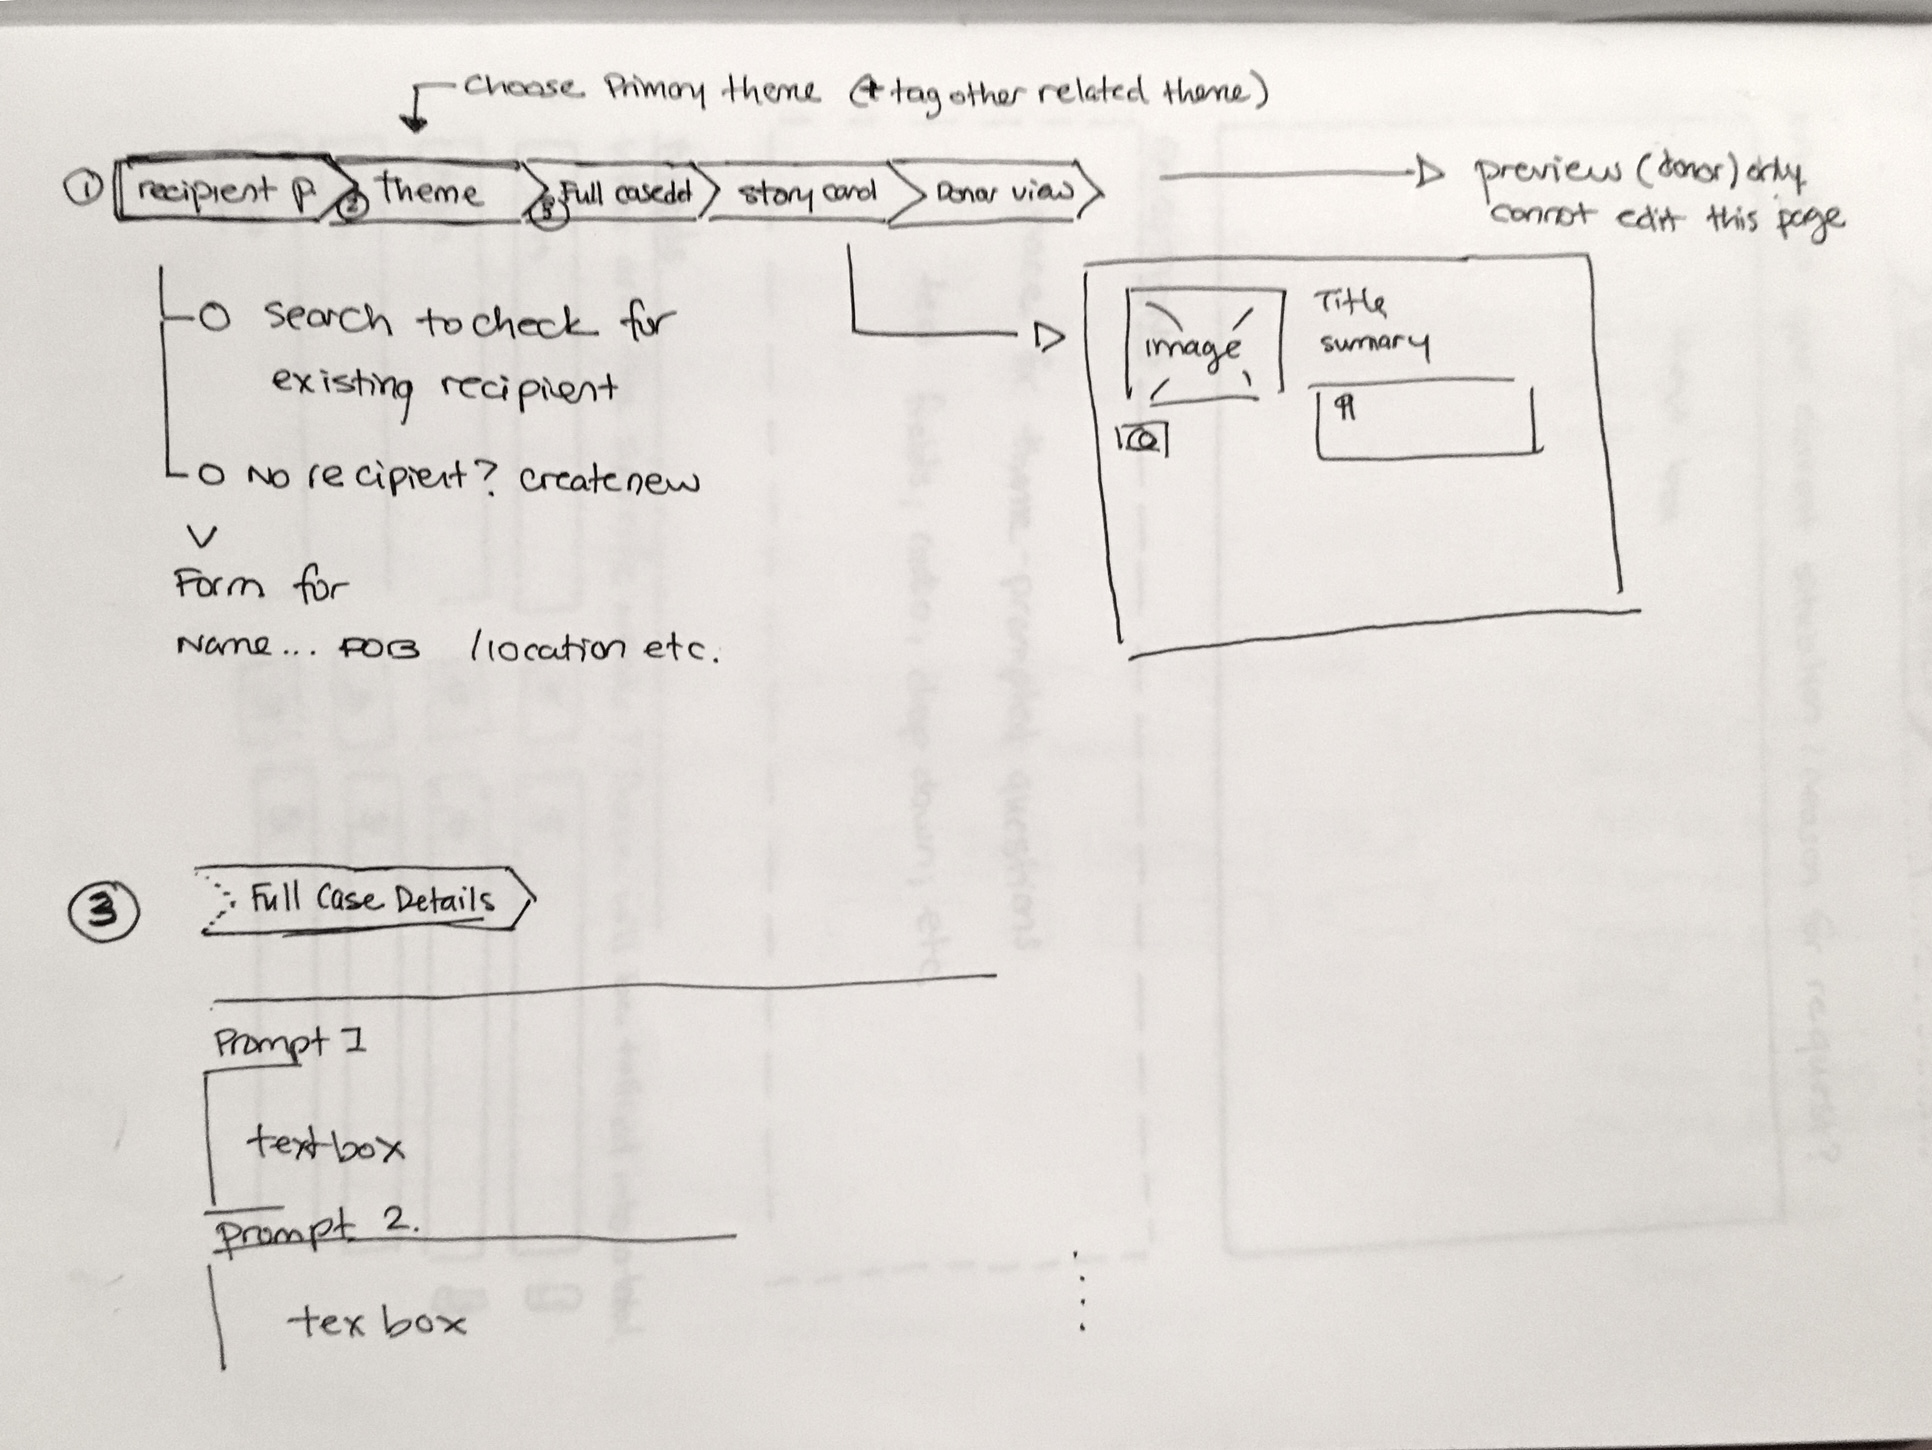 Choose Primary theme (+ tag other related theme)
① recipient P. ② Theme ③ Full casedd story card Donor view
preview (donor) only
cannot edit this page
search to check for
existing recipient
No recipient? create new
Form for
Name... DOB / location etc.
image
Title
sumary
¶
③ Full Case Details
Prompt 1
textbox
Prompt 2.
tex box